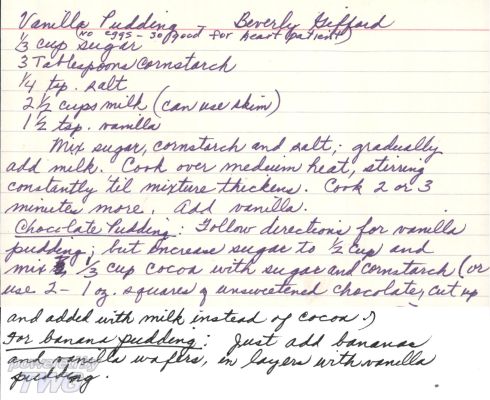 Vanilla Pudding - Beverly Gifford
(no eggs - so good for heart patient)
1/3 cup sugar
3 Tablespoons cornstarch
1/4 tsp. salt
2 1/2 cups milk (can use skim)
1 1/2 tsp. vanilla
Mix sugar, cornstarch and salt; gradually
add milk. Cook over medium heat, stirring
constantly til mixture thickens. Cook 2 or 3
minutes more. Add vanilla.
Chocolate Pudding: Follow directions for vanilla
pudding; but increase sugar to 1/2 cup and
mix 1/3 cup cocoa with sugar and cornstarch (or
use 2 - 1 oz. squares of unsweetened chocolate, cut up
and added with milk instead of cocoa.)
For banana pudding: Just add bananas
and vanilla wafers, in layers with vanilla
pudding.
powered by
TWG